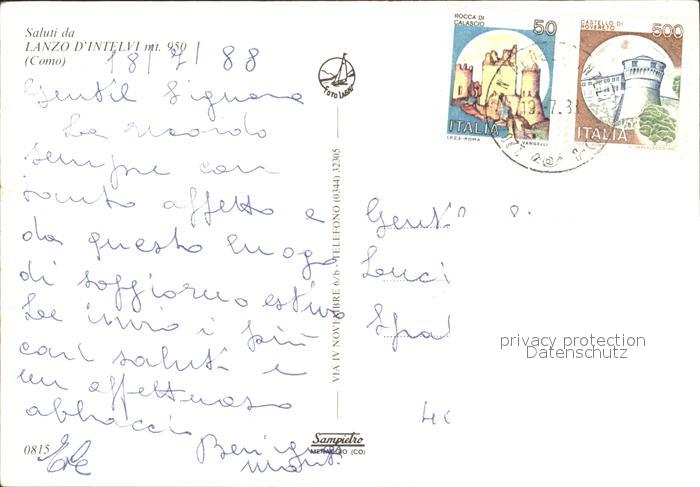 Saluti da
LANZO D'INTELVI mt. 950
(Como)
18/7/88
Gentil Signora
La ricordo
sempre con
tanto affetto e
da questo luogo
di soggiorno estivo
Le invio i più
cari saluti e
un affettuoso
abbraccio
0815
FOTO LABRO
VIA IV NOVEMBRE 6/b - TELEFONO (0344) 32305
Sampietro
MENAGGIO (CO)
ROCCA DI
CALASCIO
50
ITALIA
I.P.Z.S. - ROMA
VANGELLI
CASTELLO DI
ROVERETO
500
ITALIA
Gent
Luci
privacy protection
Datenschutz